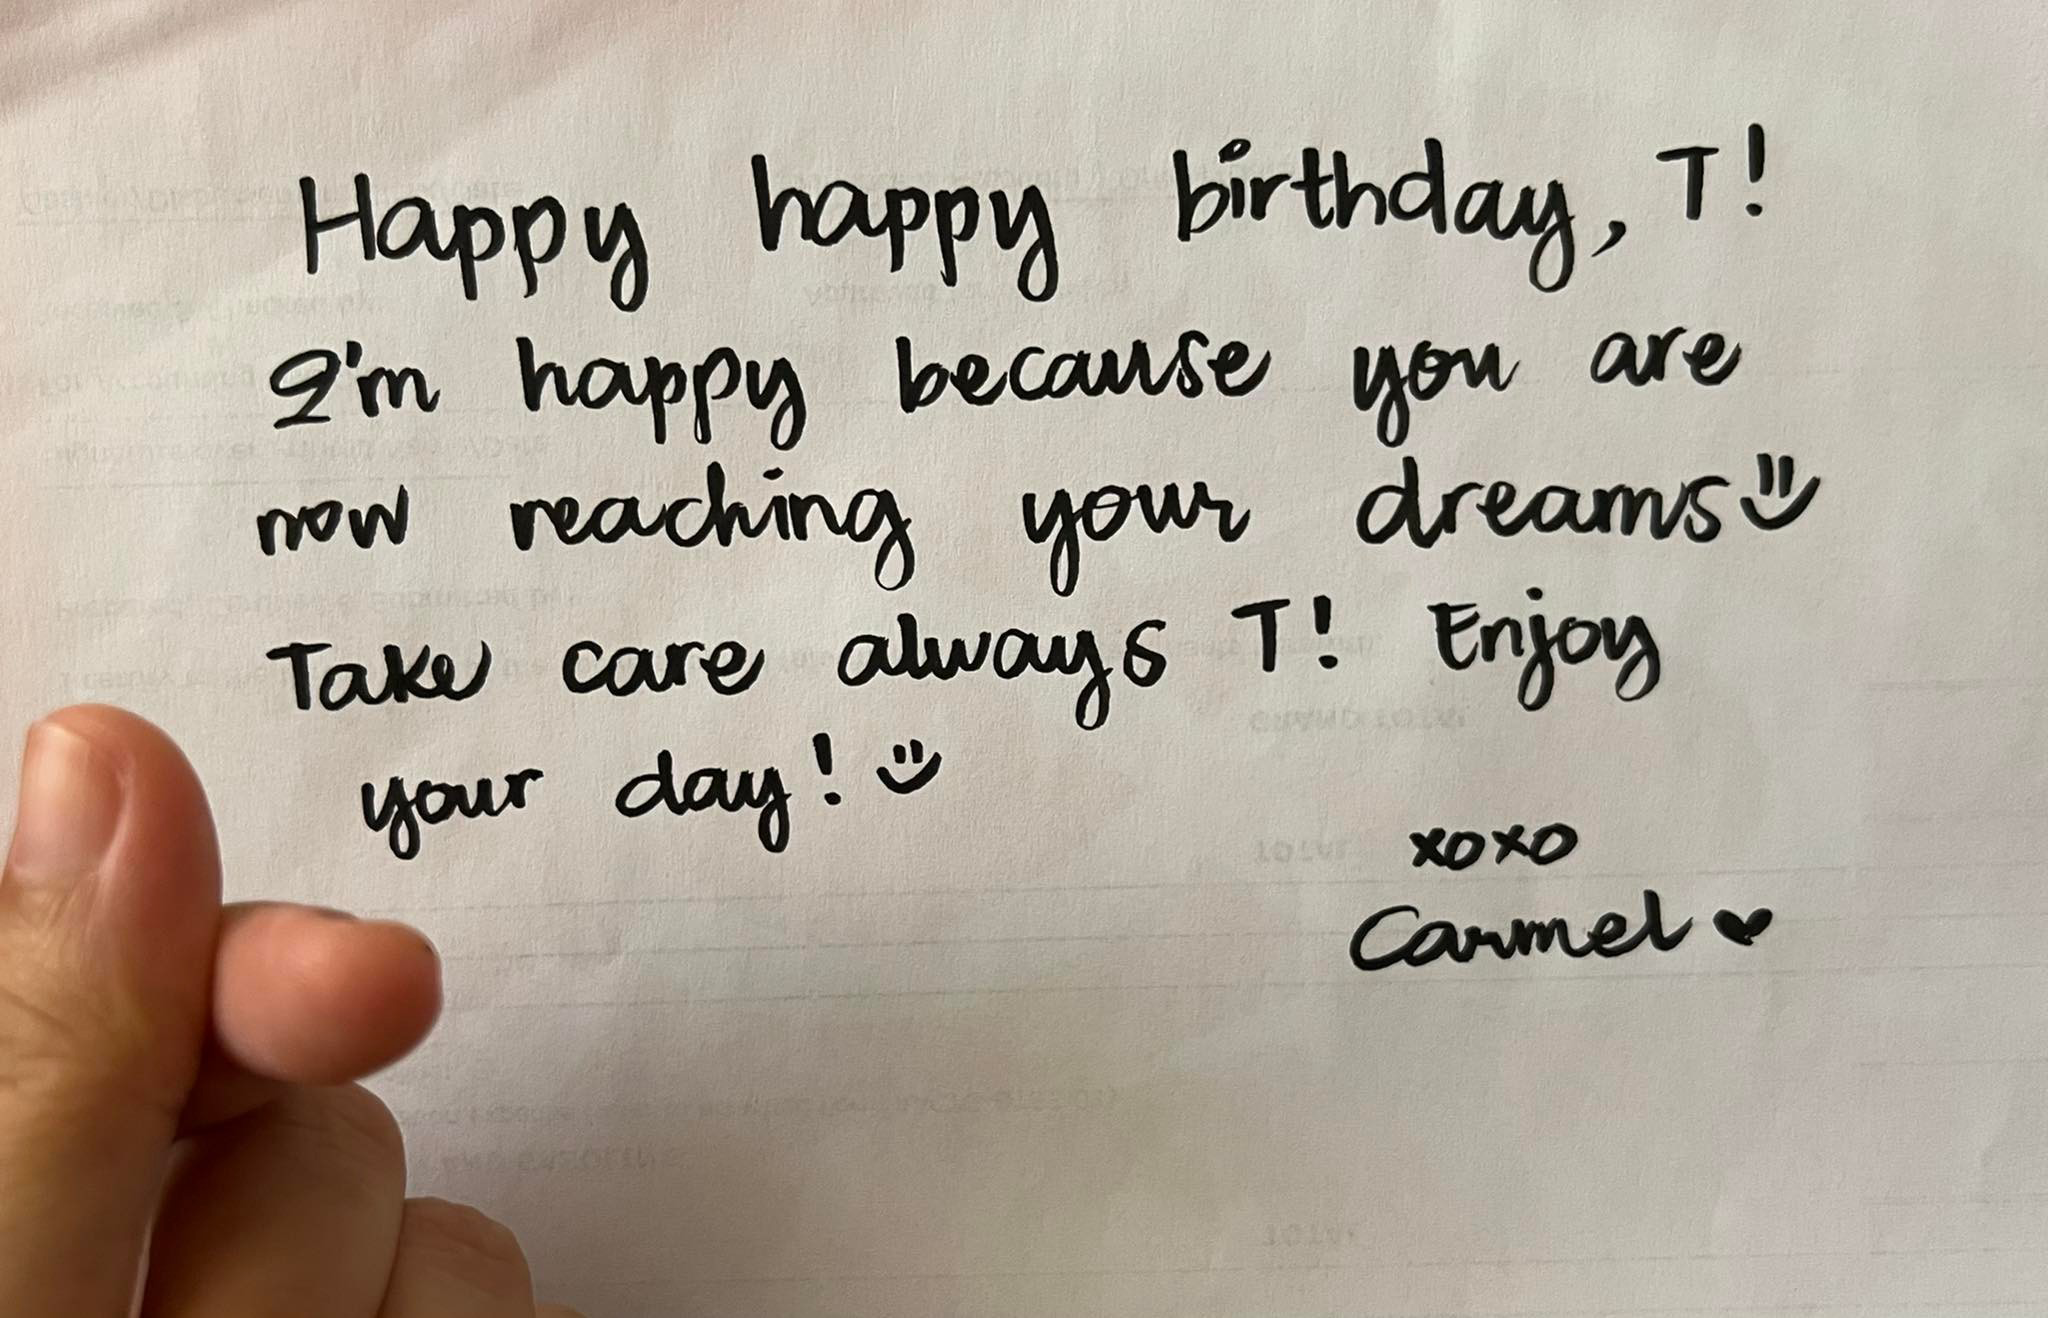 Happy happy birthday, T!
I'm happy because you are
now reaching your dreams
Take care always T! Enjoy
your day!
xoxo
Carmel ♥
GRAND TOTAL
TOTAL
TOTAL